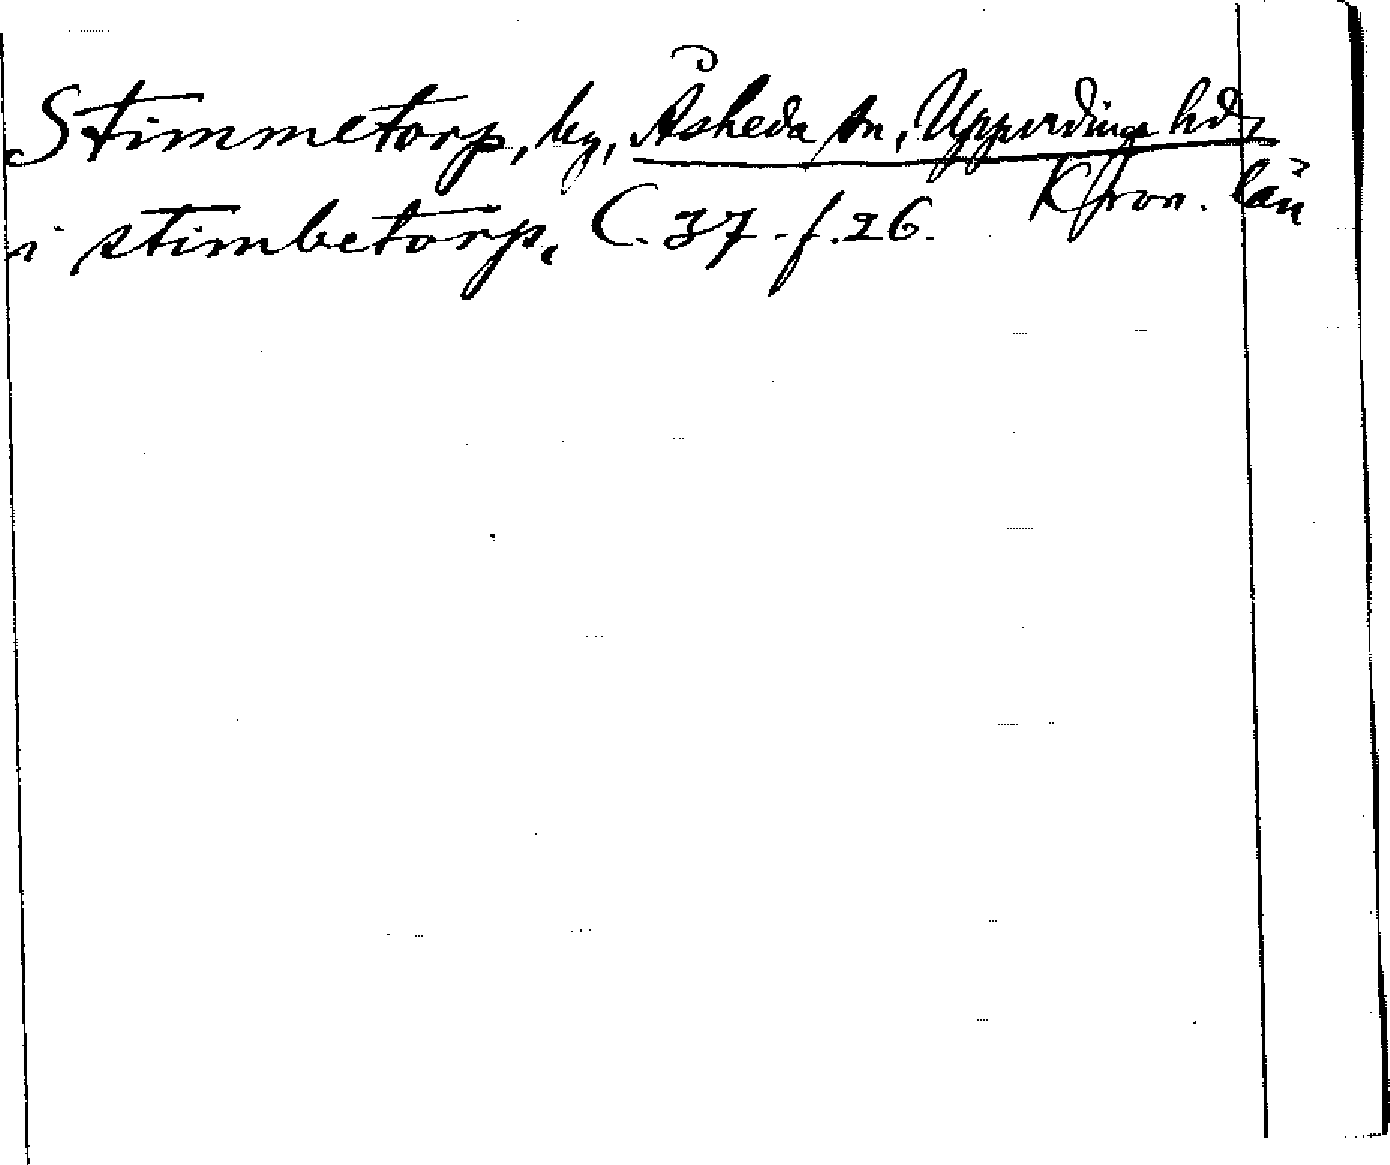 Stimmetorp, by, Åsheda sn, Uppvidinge hd,
Kron. län
i stimbetorp, C. 37 f. 26.